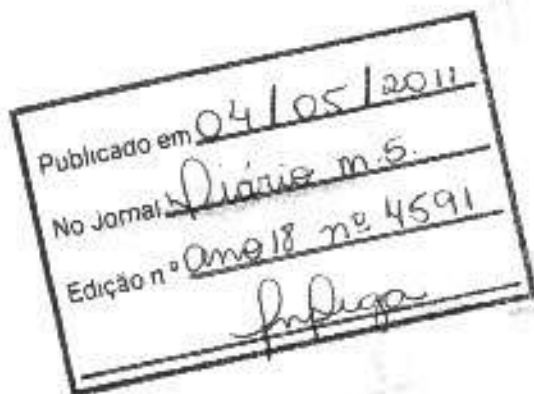 Publicado em 04/05/2011
No Jornal Diário m.s.
Edição nº ano 18 nº 4591